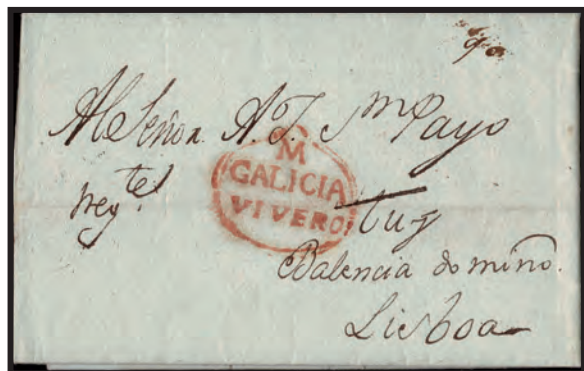 Al Señor A. T. Mayo
neg.te
M
GALICIA
VIVERO
Tuy
Balencia do miño.
Lisboa